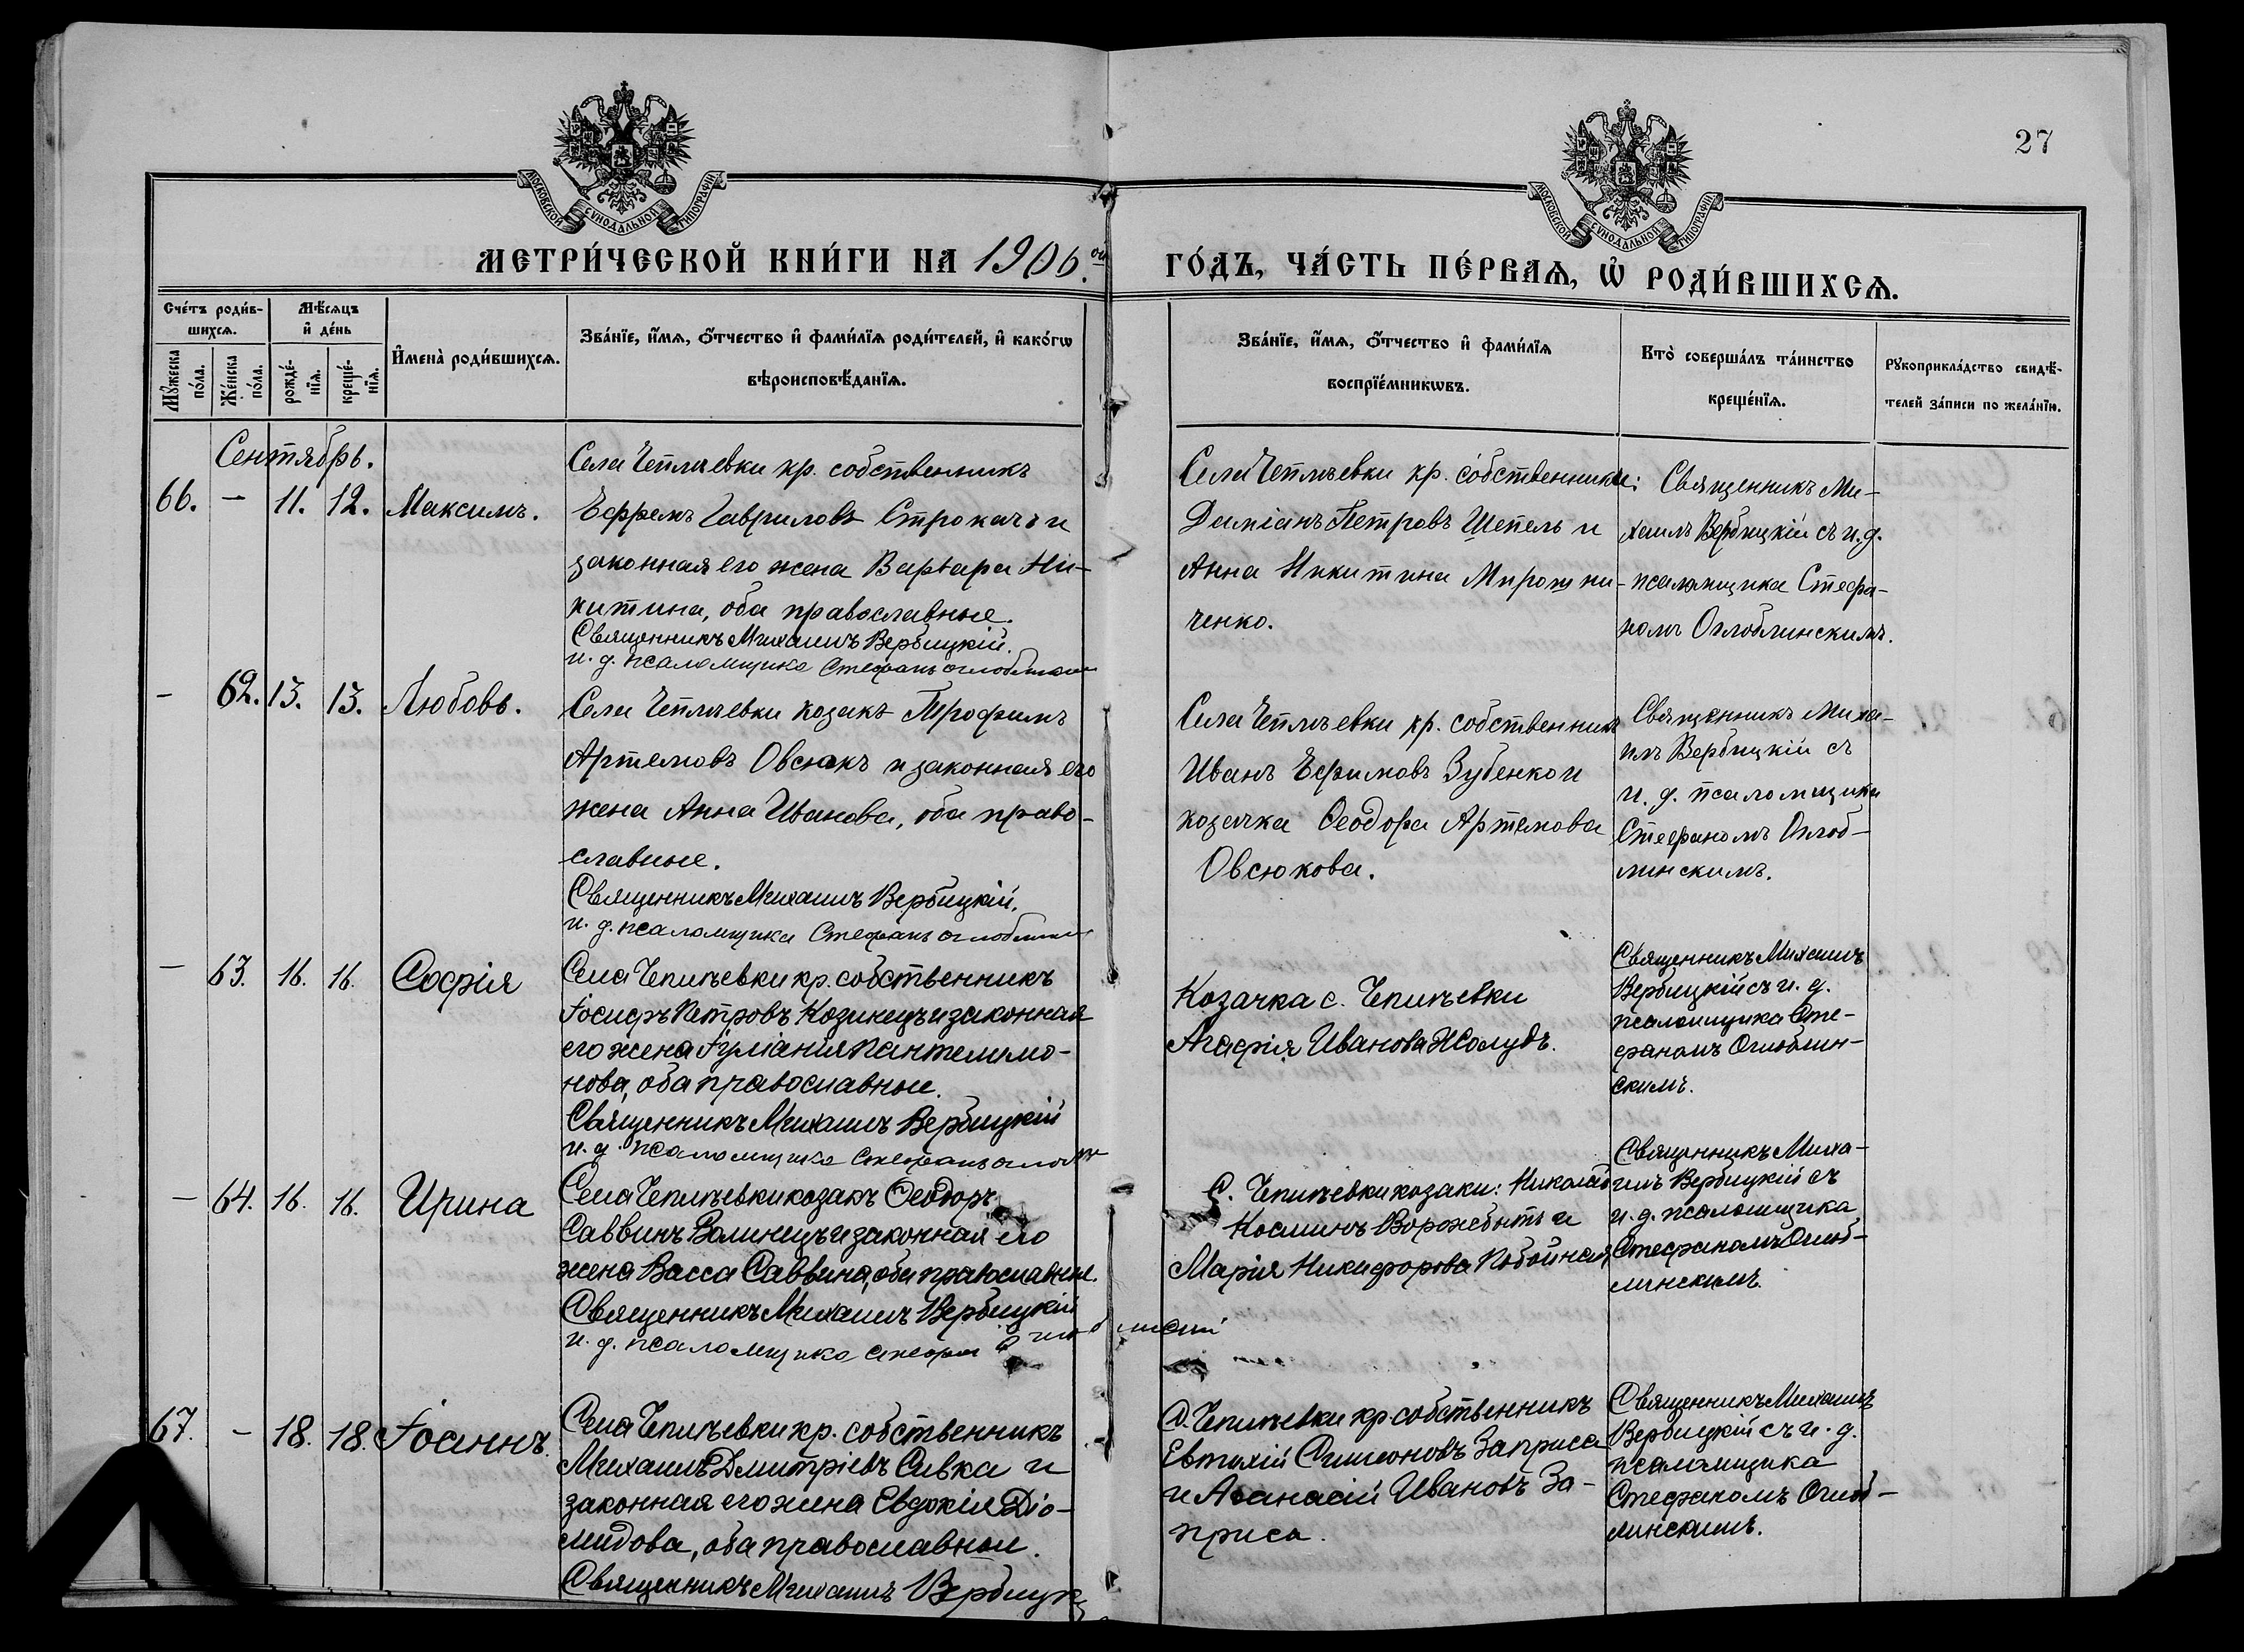 27
МОСКОВСКОЙ СУНОДАЛЬНОЙ ТИПОГРАФІИ
МОСКОВСКОЙ СУНОДАЛЬНОЙ ТИПОГРАФІИ
МЕТРИ́ЧЕСКОЙ КНИ́ГИ НА 1906.ой ГО́ДЪ, ЧА́СТЬ ПЕ́РВАѦ, Ѡ҆ РОДИ́ВШИХСѦ.
Сче́тъ роди́в-
шихсѧ.
Мꙋ́жеска
по́ла.
Же́нска
по́ла.
Мѣ́сѧцъ
и҆ де́нь
рожде́-
нїѧ.
креще́-
нїѧ.
И҆мена̀ роди́вшихсѧ.
Зва́нїе, и҆́мѧ, ѻ҆́тчество и҆ фами́лїѧ роди́телей, и҆ како́гѡ
вѣроисповѣ́данїѧ.
Зва́нїе, и҆́мѧ, ѻ҆́тчество и҆ фами́лїѧ
воспрїе́мникѡвъ.
Кто̀ соверша́лъ та́инство
креще́нїѧ.
Рꙋкоприкла́дство свидѣ́-
телей за́писи по жела́нїю.
Сентябрь.
66. — 11. 12. Максимъ.
Села Чепліевки кр. собственникъ
Ефремъ Гавриловъ Строкачъ и
законная его жена Варвара Ни-
китина, оба православные.
Священникъ Михаилъ Вербицкій.
и. д. псаломщика Стефанъ Оглоблин
Села Чепліевки кр. собственники:
Даміанъ Петровъ Шепель и
Анна Никитина Мирошни-
ченко.
Священникъ Ми-
хаилъ Вербицкій съ и. д.
псаломщика Стефа-
номъ Оглоблинскимъ.
— 62. 13. 13. Любовь.
Села Чепліевки козакъ Трофимъ
Артемовъ Овсюкъ и законная его
жена Анна Иванова, оба право-
славные.
Священникъ Михаилъ Вербицкій.
и. д. псаломщика Стефанъ Оглоблин
Села Чепліевки кр. собственникъ
Иванъ Ефимовъ Зубенко и
козачка Ѳеодора Артемова
Овсюкова.
Священникъ Миха-
илъ Вербицкій съ
и. д. псаломщика
Стефаномъ Оглоб-
линскимъ.
— 63. 16. 16. Софія
Села Чепліевки кр. собственникъ
Іосифъ Петровъ Козинецъ и законная
его жена Іуліанія Пантелимо-
нова, оба православные.
Священникъ Михаилъ Вербицкій
и. д. псаломщика Стефанъ
Козачка с. Чепліевки
Агафія Иванова Жолудь.
Священникъ Михаилъ
Вербицкій съ и. д.
псаломщика Сте-
фаномъ Оглоблин-
скимъ.
— 64. 16. 16. Ирина
Села Чепліевки козакъ Ѳеодоръ
Саввинъ Волинецъ и законная его
жена Васса Саввина, оба православные.
Священникъ Михаилъ Вербицкій
и. д. псаломщика Стефан Оглоблинский
С. Чепліевки козаки: Николай
Косминъ Ворожбитъ и
Марія Никифорова Побойная
Священникъ Миха-
илъ Вербицкій съ
и. д. псаломщика
Стефаномъ Оглоб-
линскимъ.
67. — 18. 18. Іоаннъ.
Села Чепліевки кр. собственникъ
Михаилъ Дмитріевъ Сивка и
законная его жена Евдокія Діо-
мидова, оба православные.
Священникъ Михаилъ Вербицк
С. Чепліевки кр собственникъ
Евтихій Симеоновъ Заприса
и Аѳанасій Ивановъ За-
приса.
Священникъ Михаилъ
Вербицкій съ и. д.
псаломщика
Стефаномъ Оглоб-
линскимъ.